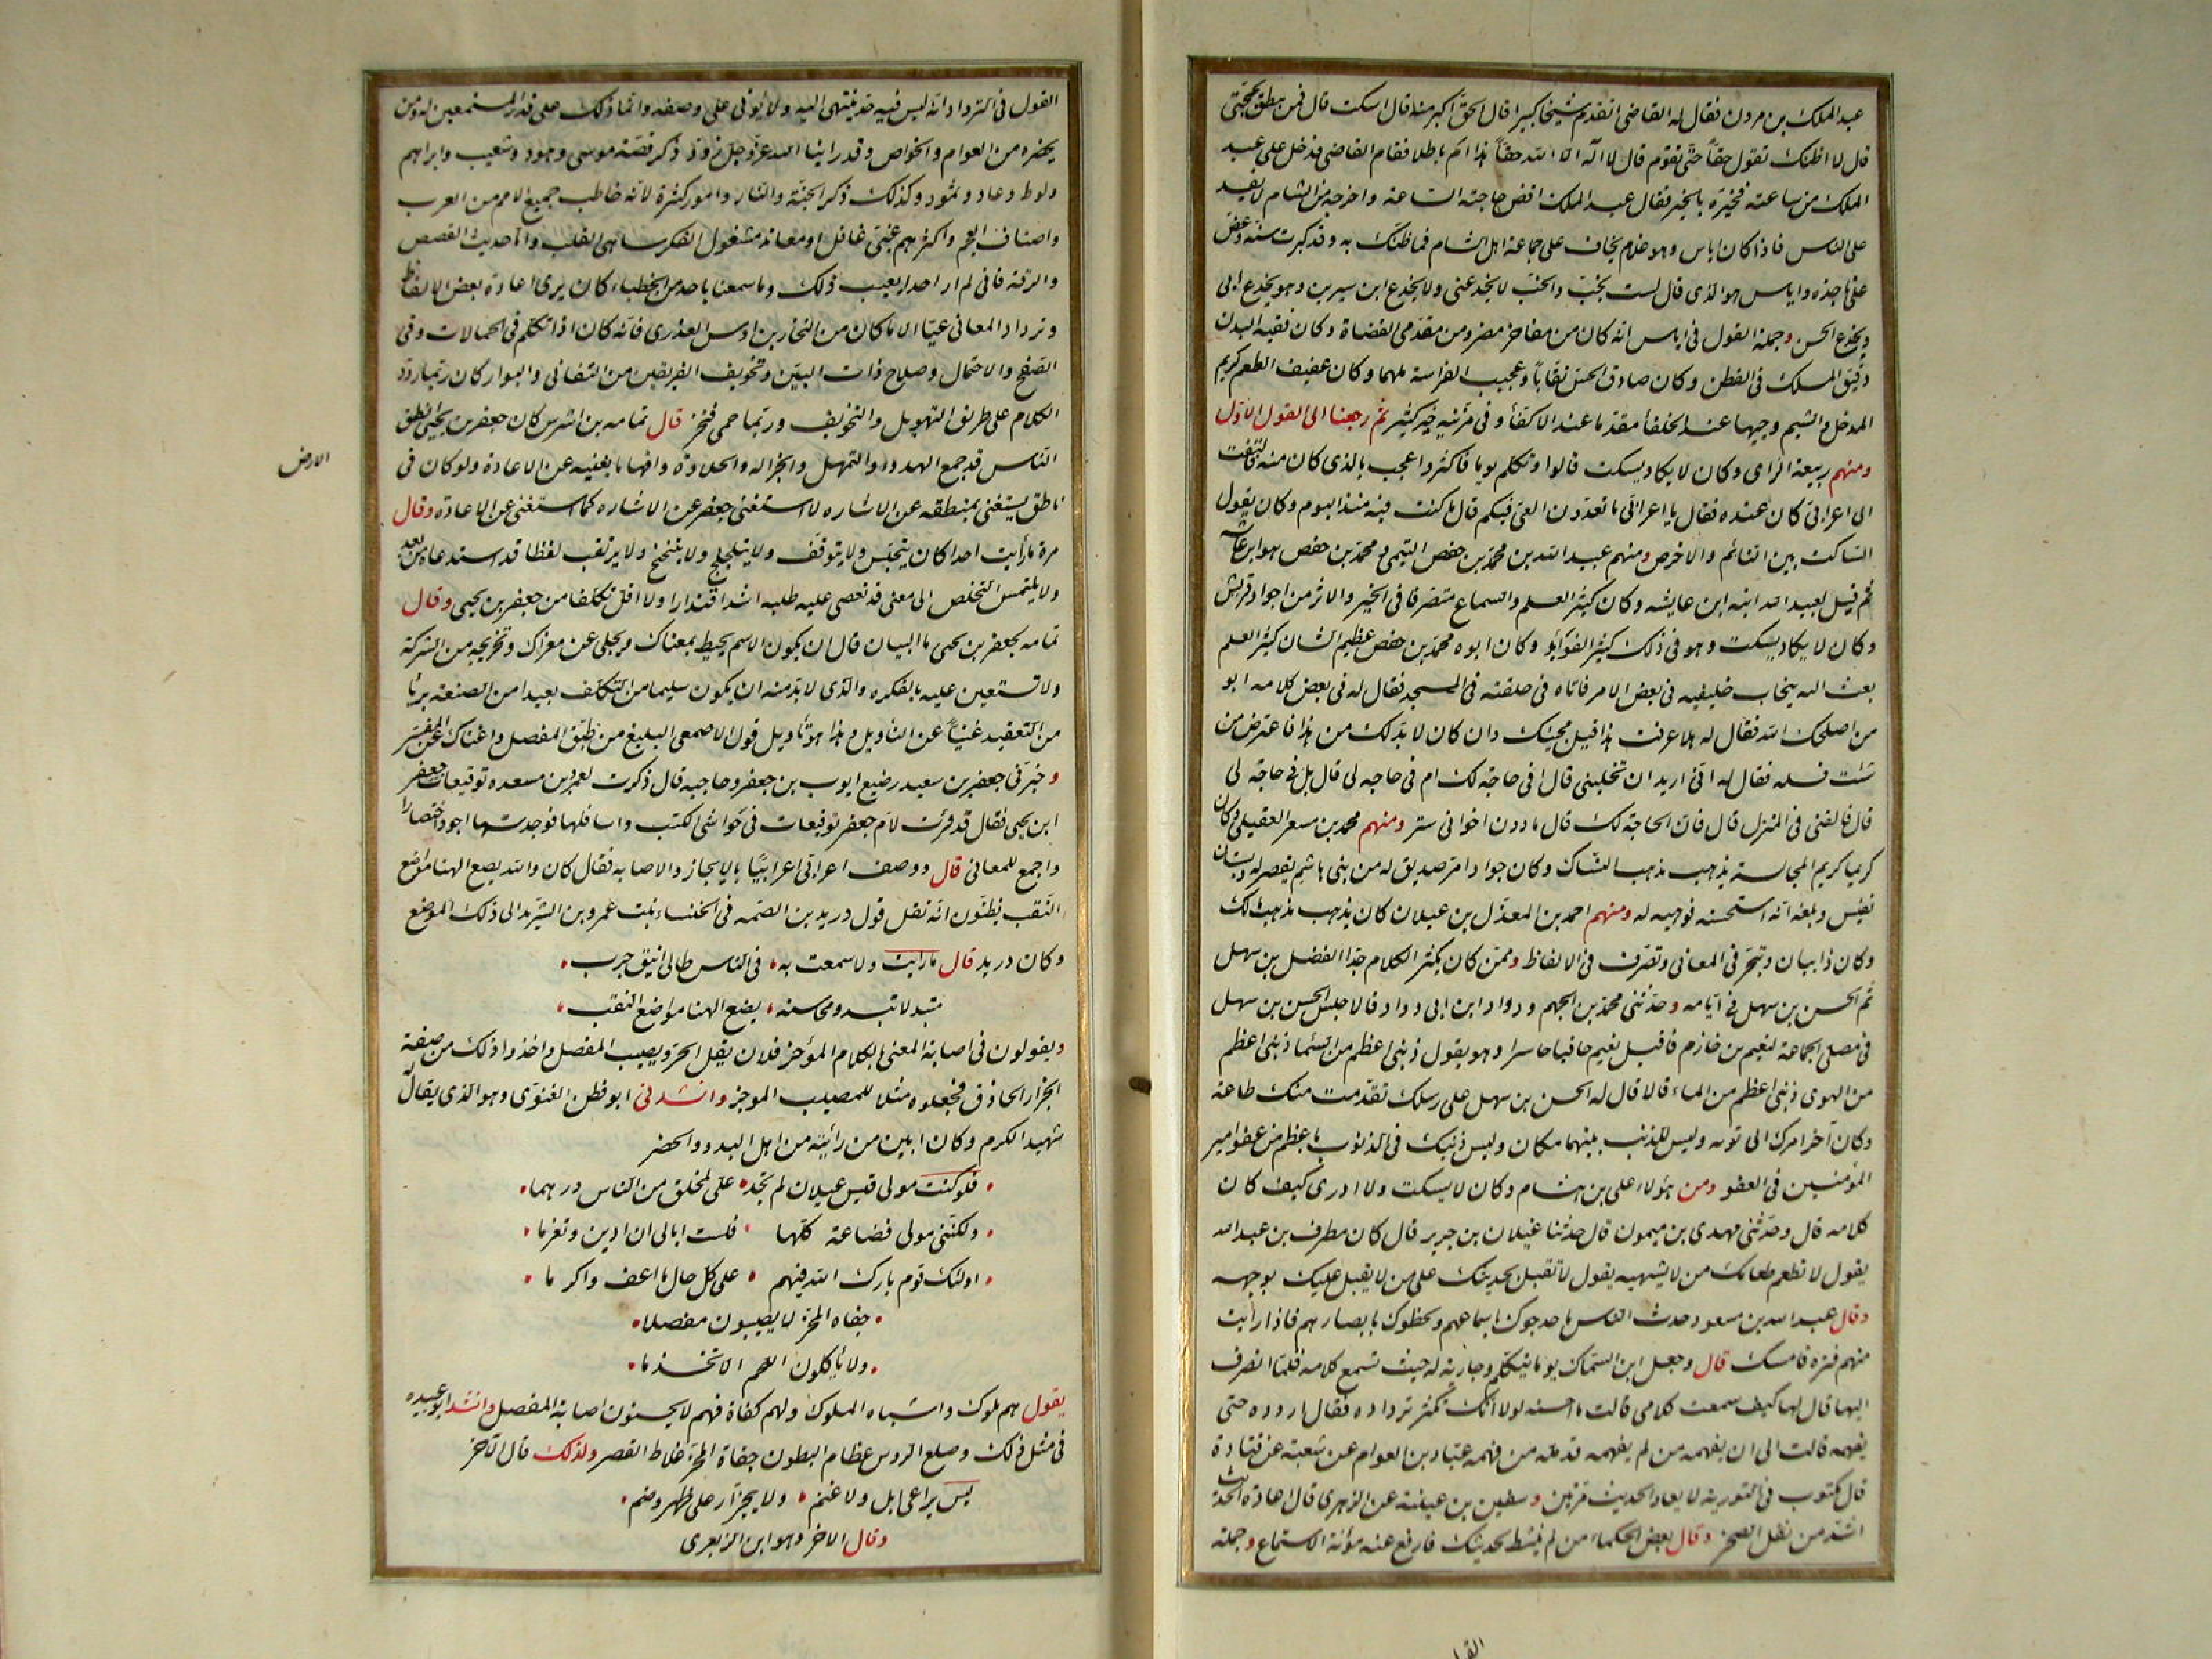 عبد الملك بن مردون فقال له القاضى اتقدم شيخا كبيرا قال الحق اكبر منه قال اسكت قال فمن ينطق بحجتى
قال لا اظنك تقول حقاً حتّى تقوم قال لا اله الا الله حقاً هذا ام باطلا فقام القاضى فدخل على عبد
الملك من ساعته فخبره بالخبر فقال عبد الملك اقض حاجته الساعة واخرجه من الشام لا يفسد
على الناس فاذا كان اياس وهو غلام يخاف على جماعة اهل الشام فما ظنك به وقد كبرت سنه وعض
على ناجذه واياس هو الذى قال لست بخب والخب لا يخدعنى ولا يخدع ابن سيرين وهو يخدع ابى
ويخدع الحسن وجملة القول فى اياس انه كان من مفاخر مضر ومن مقدمى القضاة وكان فقيه البدن
دقيق المسلك فى الفطن وكان صادق الحس نقاباً وعجيب الفراسة ملهما وكان عفيف الطعم كريم
المدخل والشيم وجيها عند الخلفأ مقدما عند الاكفأ وفى مزينه خير كثير ثم رجعنا الى القول الاوّل
ومنهم ربيعة الراى وكان لا يكاد يسكت قالوا وتكلم يوما فاكثر واعجب بالذى كان منه فالتفت
الى اعرابى كان عنده فقال يا اعرابى ما تعدّون العىّ فيكم قال ما كنت فيه منذ اليوم وكان يقول
الساكت بين النائم والاخرص ومنهم عبيد الله بن محمد بن حفص التيمى ومحمد بن حفص هو ابن عائشه
ثم قيل لعبيد الله ابنه ابن عايشه وكان كثير العلم والسماع متصرفا فى الخبر والاثر من اجواد قريش
وكان لا يكاد يسكت وهو فى ذلك كثير الفوائد وكان ابوه محمد بن حفص عظيم الشان كثير العلم
بعث اليه ينخاب خليفيه فى بعض الامر فاتاه فى حلقته فى المسجد فقال له فى بعض كلامه ابو
من اصلحك الله فقال له هلا عرفت هذا قبل مجيئك وان كان لا بدّ لك من هذا فاعترض من
شئت فسله فقال له انى اريد ان تخلينى قال افى حاجة لك ام فى حاجه لى قال بل فى حاجة لى
قال فالقنى فى المنزل قال فان الحاجة لك قال ما دون اخوانى ستر ومنهم محمد بن مسعر العقيلى وكان
كريما كريم المجالسة يذهب مذهب النساك وكان جوادا مر صديق له من بنى هاشم بقصر له وبستان
نفيس وبلغه انه استحسنه فوهبه له ومنهم احمد بن المعذّل بن عيلان كان يذهب مذهب ذلك
وكان ذا بيان وتبحّر فى المعانى وتصرّف فى الالفاظ وممن كان يكثر الكلام جدا الفضل بن سهل
ثم الحسن بن سهل فى ايامه وحدّثنى محمد بن الجهم ودواد ابن ابى دواد قالا جلس الحسن بن سهل
فى مصلى الجماعة لنعيم بن خازم فاقبل نعيم حافيا حاسرا وهو يقول ذنبى اعظم من السما ذنبى اعظم
من الهوى ذنبى اعظم من الماء قالا قال له الحسن بن سهل على رسلك تقدّمت منك طاعة
وكان آخر امرك الى توبه وليس للذنب بينهما مكان وليس ذنبك فى الذنوب باعظم من عفو امير
المؤمنين فى العفو ومن هؤلاء على بن هشام وكان لا يسكت ولا ادرى كيف كان
كلامه قال وحدّثنى مهدى بن ميمون قال حدثنا غيلان بن جرير قال كان مطرف بن عبد الله
يقول لا تطعم طعامك من لا يشتهيه يقول لا تقبل بحديثك على من لا يقبل عليك بوجهه
وقال عبد الله بن مسعود حدث الناس ما حدجوك باسماعهم ولحظوك بابصارهم فاذا رايت
منهم فترة فامسك قال وجعل ابن السماك يوما يتكلم وجارية له حيث تسمع كلامه فلمّا انصرف
اليها قال لها كيف سمعت كلامى قالت ما احسنه لولا انك تكثر ترداده فقال اردده حتى
يفهمه قالت الى ان يفهمه من لم يفهمه قد ملّه من فهمه عبّاد بن العوام عن شعبة عن قتادة
قال مكتوب فى التورية لا يعاد الحديث مرّتين وسفين بن عيينة عن الزهرى قال اعادة الحديث
اشدّ من نقل الصخر وقال بعض الحكماء من لم ينشط لحديثك فارفع عنه مؤنة الاستماع وجملة
القول
القول فى الترداد انه ليس فيه حد ينتهى اليه ولا يؤتى على وصفه وانما ذلك على قدر المستمعين له ومن
يحضره من العوام والخواص وقد راينا الله عز وجل ردّد ذكر قصّة موسى وهود وشعيب وابراهيم
ولوط وعاد وثمود وكذلك ذكر الجنّة والنار وامور كثيرة لانه خاطب جميع الامم من العرب
واصناف العجم واكثرهم غبىّ غافل او معاند مشغول الفكر ساهى القلب وامّا حديث القصص
والرقة فانى لم ار احدا يعيب ذلك وما سمعنا باحد من الخطباء كان يرى اعادة بعض الالفاظ
وترداد المعانى عيّا الا ما كان من النخار بن اوس العذرى فانه كان اذا تكلم فى الحمالات وفى
الصّفح والاحتمال وصلاح ذات البيّن وتخويف الفريقين من التفانى والبوار كان ربّما ردّد
الكلام على طريق التهويل والتخويف وربّما حمى فنخر قال ثمامه بن اشرس كان جعفر بن يحيى انطق
الناس قد جمع الهدو والتمهل والجزاله والحلاوة وافهاما يغنيه عن الاعادة ولو كان فى
الارض
ناطق يستغنى بمنطقه عن الاشاره لاستغنى جعفر عن الاشاره كما استغنى عن الاعادة وقال
مرة ما رأيت احدا كان لا يتحبّس ولا يتوقّف ولا يتلجلج ولا يتنحنح ولا يرتقب لفظا قد استدعاه من بعد
ولا يلتمس التخلص الى معنى قد تعصى عليه طلبه اشد اقتدارا ولا اقل تكلفا من جعفر بن يحيى وقال
ثمامه لجعفر بن يحيى ما البيان قال ان يكون الاسم يحيط بمعناك ويجلى عن مغزاك وتخرجه من الشركة
ولا تستعين عليه بالفكره والذى لا بدّ منه ان يكون سليما من التكلف بعيدا من الصنعة بريا
من التعقيد غنياً عن التأويل وهذا هو تأويل قول الاصمعى البليغ من طبّق المفصل واغناك عن المفسّر
وخبّرنى جعفر بن سعيد رضيع ايوب بن جعفر وحاجبه قال ذكرت لعمرو بن مسعده توقيعات جعفر
ابن يحيى فقال قد قرئت لام جعفر توقيعات فى حواشى الكتب واسافلها فوجدتها اجود اختصارا
واجمع للمعانى قال ووصف اعرابى اعرابيّا بالايجاز والاصابه فقال كان والله يضع الهنا مواضع
النّقب يظنّون انّه نقل قول دريد بن الصمه فى الخنساء بنت عمرو بن الشريد الى ذلك الموضع
وكان دريد قال ما رايت ولا سمعت به • فى الناس طالى انيق جرب •
متبدلا تبدو محاسنه • يضع الهنا مواضع النقب •
ويقولون فى اصابة المعنى بالكلام المؤجز فلان يقل الحز ويصيب المفصل واخذوا ذلك من صفة
الجزار الحاذق فجعلوه مثلا للمصيب الموجز وانشدنى ابو قطن الغنوى وهو الذى يقال له
شهيد الكرم وكان ابين من رأيته من اهل البدو والحضر
• فلو كنت مولى قيس عيلان لم تجد • على لمخلق من الناس درهما •
• ولكنّنى مولى قضاعة كلّها • فلست ابالى ان ادين وتغرما •
• اولئك قوم بارك الله فيهم • على كل حال ما اعف واكرما •
• جفاه المحزّ لا يصيبون مفصلا •
• ولا يأكلون اللحم الا تخذما •
يقول هم ملوك واشباه الملوك ولهم كفاة فهم لا يحسنون اصابة المفصل وانشد ابو عبيده
فى مثل ذلك وصلع الروس عظام البطون جفاة المحزّ غلاظ القصر ولذلك قال الآخر
ليس براعى ابل ولا غنم • ولا بجزّار على ظهر وضم •
وقال الاخر وهو ابن الزبعرى